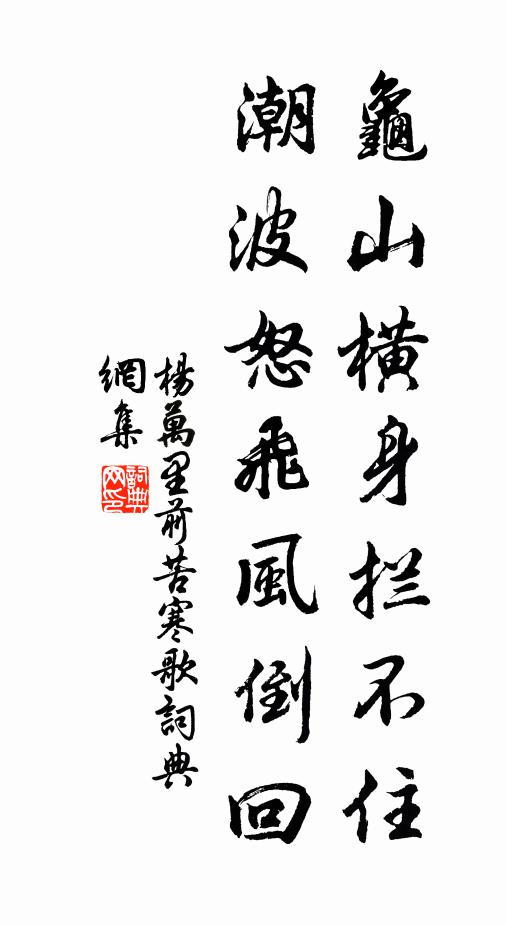 龜山橫身拦不住
潮波怒飛風倒回
楊萬里前苦寒歌詞典
網集
詞典
网印